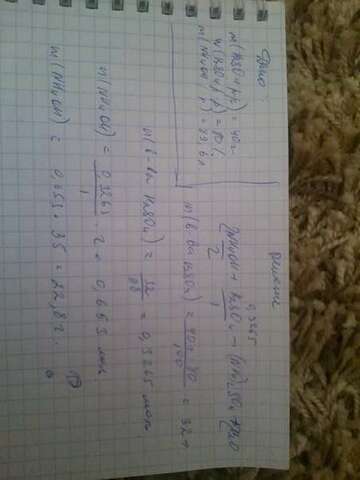 Дано:
m(H2SO4 р-р) = 40 г
w(H2SO4 р-р) = 80%
m(NH4OH р-р) = 79,6 г
решение
0,3265
2NH4OH + H2SO4 → (NH4)2SO4 + 2H2O
2 1
m(в-ва H2SO4) = 40 · 80 / 100 = 32 г
n(в-ва H2SO4) = 32 / 98 = 0,3265 моль
n(NH4OH) = 0,3265 / 1 · 2 = 0,653 моль
m(NH4OH) = 0,653 · 35 = 22,8 г